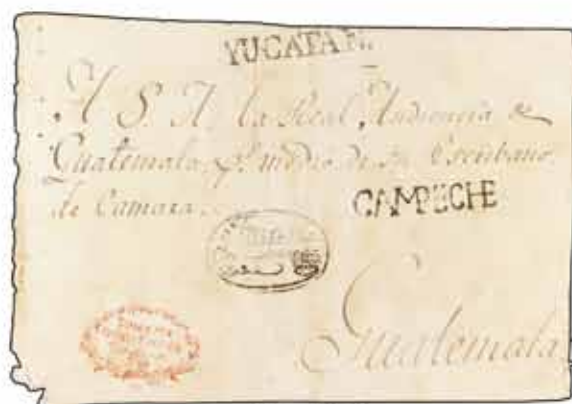 YUCATAN
A S. A. la Real Audiencia de
Guatemala, pr. medio de su Escribano
de Camara.
CAMPECHE
Guatemala